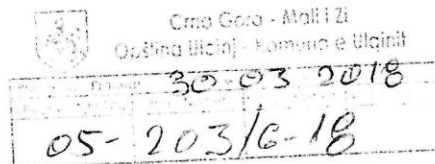 Crna Gora - Mali i Zi
Opština Ulcinj - Komuna e Ulqinit
30 03 2018
05- 203/6-18